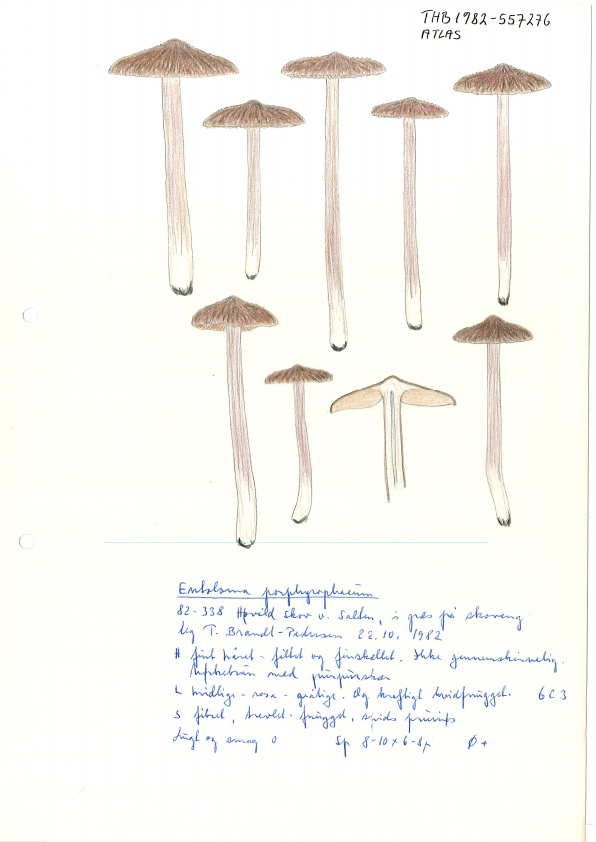 THB 1982-557276
ATLAS
Entoloma porphyrophaeum
82-338 skov v. Salten, i græs på skoveng
leg T. Brandt-Pedersen 22.10.1982
H fint håret - filtet og finskællet. Ikke gennemskinnelig.
med purpurskær
L hvidlige - rosa - grålige. Og kraftigt 6C3
S fibret,
Lugt og smag 0 Sp 8-10 x 6-8µ Ø+